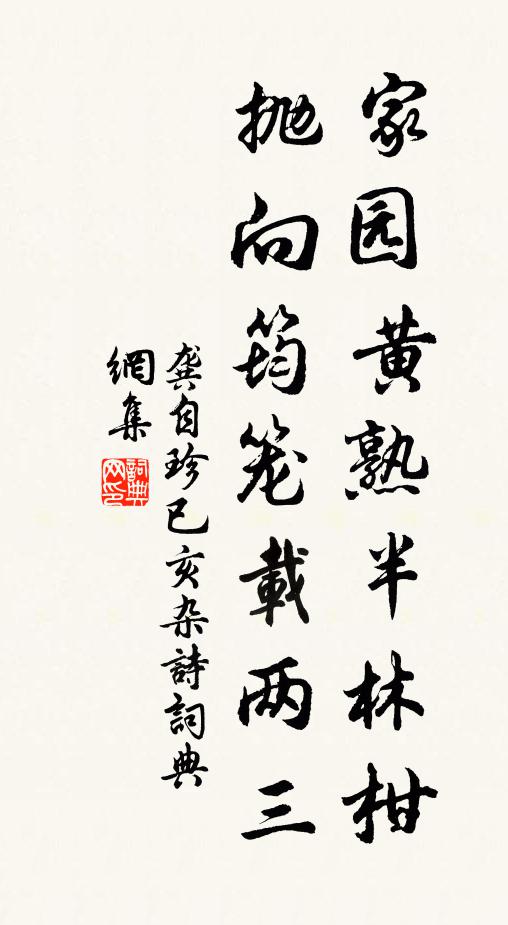 家园黄熟半林柑
抛向筠笼載两三
龚自珍己亥杂詩詞典
網集
詞典
网印